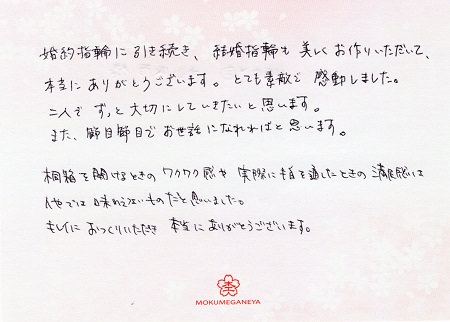 婚約指輪に引き続き、結婚指輪も美しくお作りいただいて、
本当にありがとうございます。とても素敵で感動しました。
二人でずっと大切にしていきたいと思います。
また、節目節目でお世話になれればと思います。
桐箱を開けるときのワクワク感や実際に指を通したときの満足感は
他では味わえないものだと思いました。
キレイにおつくりいただき本当にありがとうございます。
MOKUMEGANEYA